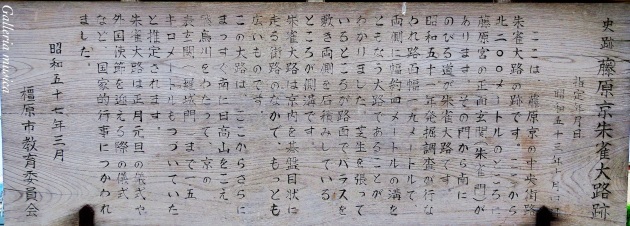 史跡 藤原京朱雀大路跡
指定年月日
昭和五十三年
ここは、藤原京の中央街路
朱雀大路の跡です。ここから
北二〇〇メートルのところに
藤原宮の正面玄関(朱雀門)が
あります。その門から南に
のびる道が朱雀大路です。
昭和五十一年発掘調査が行な
われ路面幅一九メートルで
両側に幅約四メートルの溝を
ともなう大路であることが
わかりました。芝生を張って
いるところが路面でバラスを
敷き両側を石積みしている
ところが側溝です。
朱雀大路は京内を碁盤目状に
走る街路のなかで、もっとも
広いものです。
この大路は、ここからさらに
まっすぐ南に日高山をこえ
飛鳥川をわたって、京の
表玄関「羅城門」まで一・五
キロメートルもつづいていた
と推定されます。
朱雀大路は正月元旦の儀式や
外国使節を迎える際の儀式
など、国家的行事につかわれ
ました。
昭和五十七年三月
橿原市教育委員会
Galleria musica